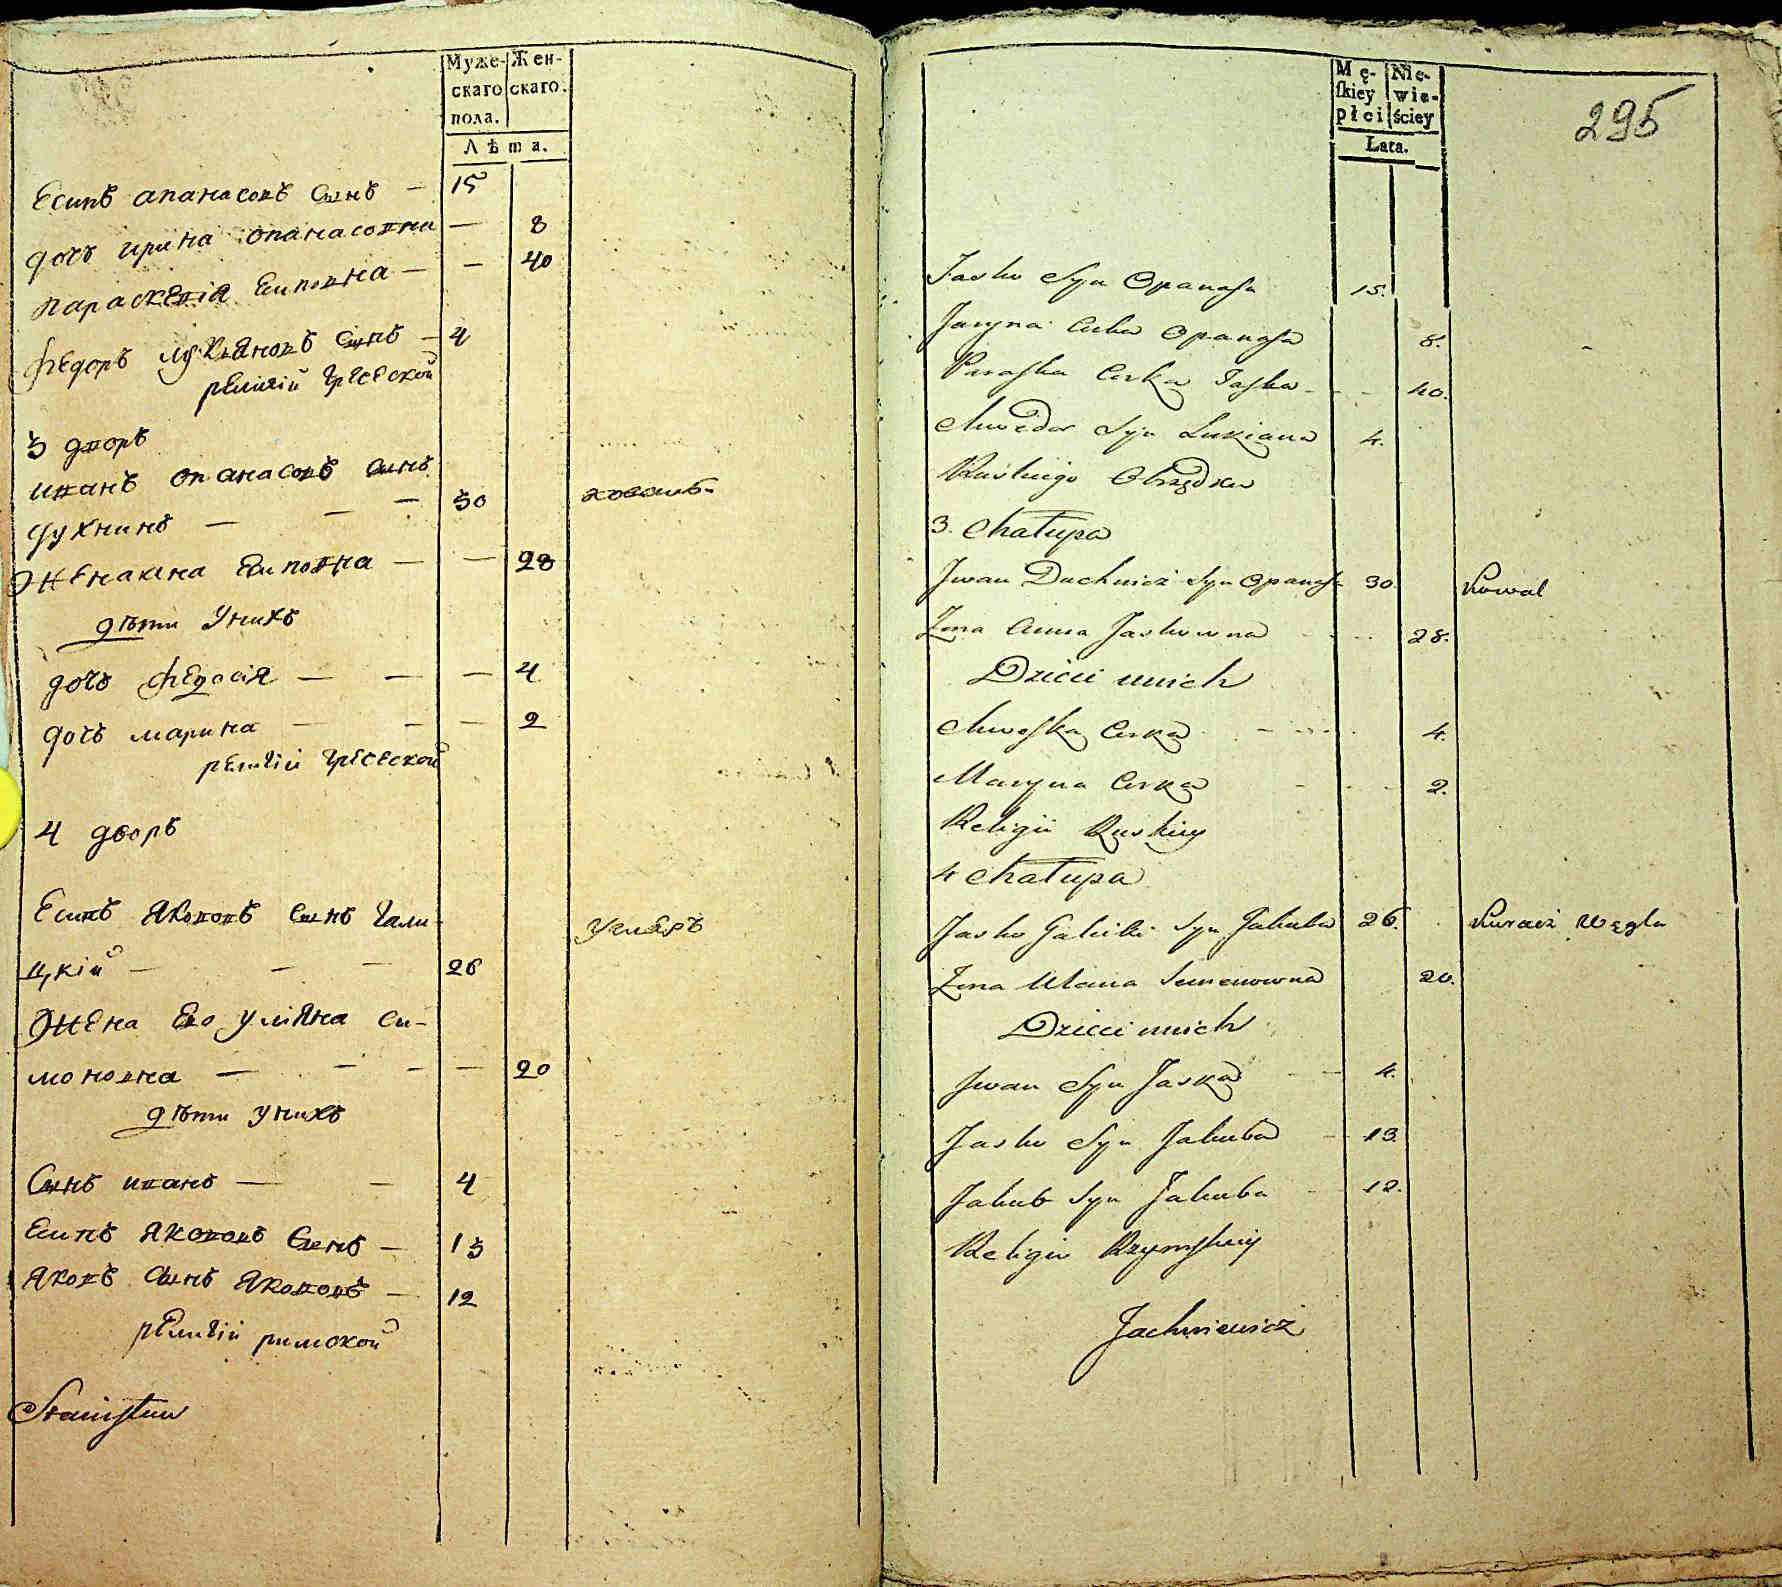 Муже- Жен-
скаго скаго.
пола.
Лѣта.
Есипъ апанасовъ сынъ — 15
дочь ирина опанасовна — 8
параскевія Есиповна — — 40
федоръ лукьяновъ сынъ — 4
религіи греческой
3 дворъ
иванъ опанасовъ сынъ
духнинъ — — — 30 коваль
жена анна Есиповна — — 28
дѣти у нихъ
дочь федосія — — — 4
дочь марина — — — 2
религіи греческой
4 дворъ
Есипъ Якововъ сынъ гали- угляръ
цкій — — — 26
жена его уліяна си-
моновна — — — — 20
дѣти у нихъ
сынъ иванъ — — 4
Есипъ Якововъ сынъ — 13
Яковъ сынъ Якововъ — 12
религіи римской
Stanisław
295
Mę- Nie-
ſkiey wie-
płci ściey
Lata.
Jasko Syn Opanasa 15.
Jaryna Curka Opanasa 8.
Paraska Curka Jaska - - 40.
Chwedor Syn Lukiana 4.
Ruskiego Obrządku
3. Chałupa
Jwan Duchnicz Syn Opanasa 30. Kowal
Żona Anna Jaskowna 28.
Dzieci unich
Chweska Curka 4.
Maryna Curka 2.
Religii Ruskiey
4 Chałupa
Jasko Galicki Syn Jakuba 26. Kuracz Węgla
Żona Ulana Semenowna 20.
Dzieci unich
Jwan Syn Jaska 4.
Jasko Syn Jakuba 13.
Jakub Syn Jakuba 12.
Religii Rzymskiey
Jachniewicz